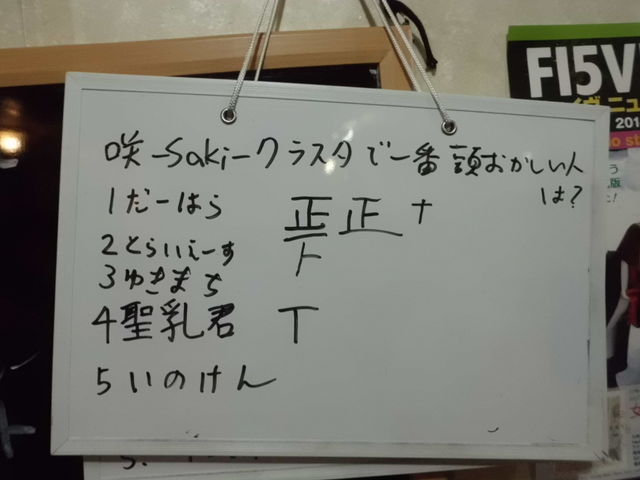 咲-Saki-クラスタで一番頭おかしい人
は?
1だーはら 正正
2とらいえーす
3ゆきまち
4聖乳君 T
5いのけん
FI5V
イヴ ニュ
201